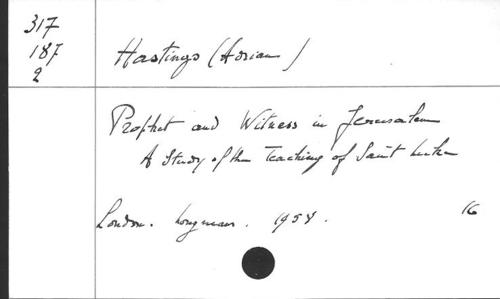 317
187
2
Hastings (Adrian)
Prophet and Witness in Jerusalem
A Study of the Teaching of Saint Luke
London. Longmans. 1958.
16